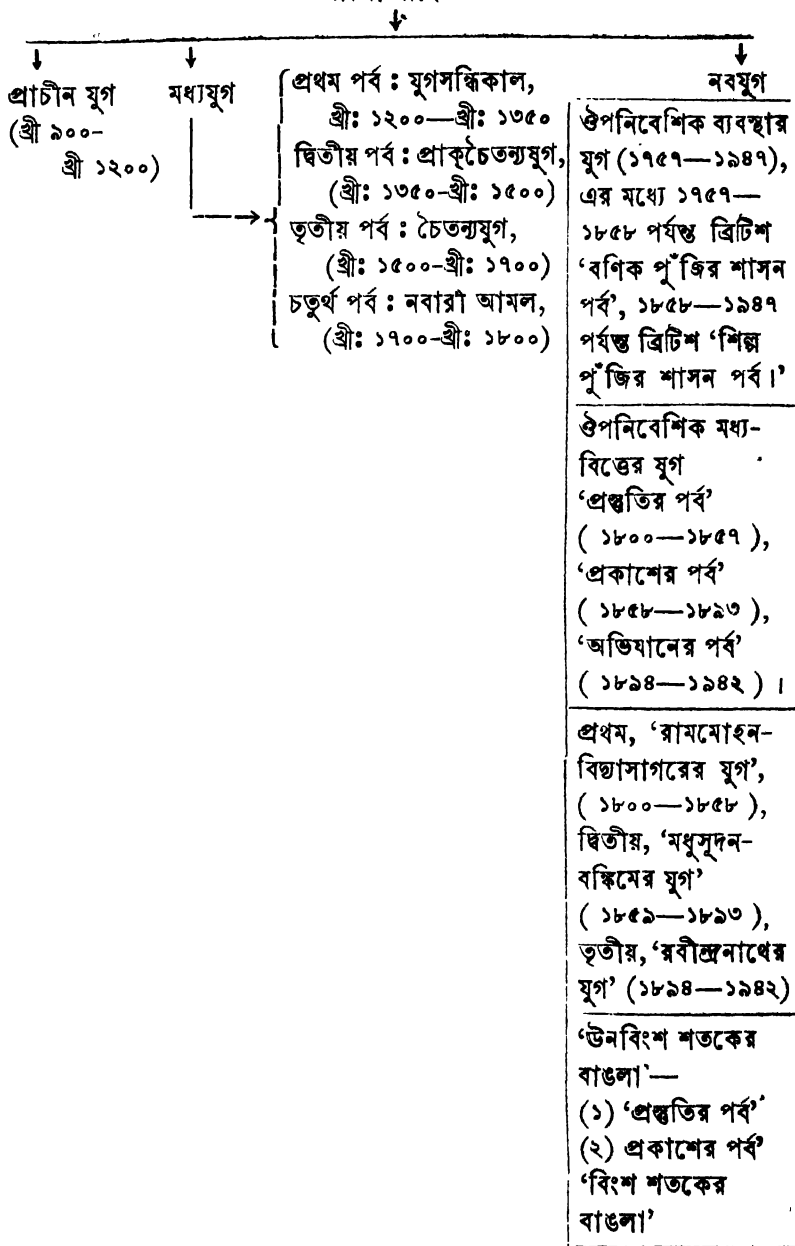 প্রাচীন যুগ
(খ্রী ৯০০-
খ্রী ১২০০)
মধ্যযুগ
প্রথম পর্ব : যুগসন্ধিকাল,
খ্রীঃ ১২০০—খ্রীঃ ১৩৫০
দ্বিতীয় পর্ব : প্রাক্‌চৈতন্যযুগ,
(খ্রীঃ ১৩৫০-খ্রীঃ ১৫০০)
তৃতীয় পর্ব : চৈতন্যযুগ,
(খ্রীঃ ১৫০০-খ্রীঃ ১৭০০)
চতুর্থ পর্ব : নবাবী আমল,
(খ্রীঃ ১৭০০-খ্রীঃ ১৮০০)
নবযুগ
ঔপনিবেশিক ব্যবস্থার
যুগ (১৭৫৭—১৯৪৭),
এর মধ্যে ১৭৫৭—
১৮৫৮ পর্যন্ত ব্রিটিশ
‘বণিক পুঁজির শাসন
পর্ব’, ১৮৫৮—১৯৪৭
পর্যন্ত ব্রিটিশ ‘শিল্প
পুঁজির শাসন পর্ব।’
ঔপনিবেশিক মধ্য-
বিত্তের যুগ
‘প্রস্তুতির পর্ব’
( ১৮০০—১৮৫৭ ),
‘প্রকাশের পর্ব’
( ১৮৫৮—১৮৯৩ ),
‘অভিযানের পর্ব’
( ১৮৯৪—১৯৪২ ) ।
প্রথম, ‘রামমোহন-
বিদ্যাসাগরের যুগ’,
( ১৮০০—১৮৫৮ ),
দ্বিতীয়, ‘মধুসূদন-
বঙ্কিমের যুগ’
( ১৮৫৯—১৮৯৩ ),
তৃতীয়, ‘রবীন্দ্রনাথের
যুগ’ (১৮৯৪—১৯৪২)
‘ঊনবিংশ শতকের
বাঙলা’—
(১) ‘প্রস্তুতির পর্ব’
(২) প্রকাশের পর্ব’
‘বিংশ শতকের
বাঙলা’